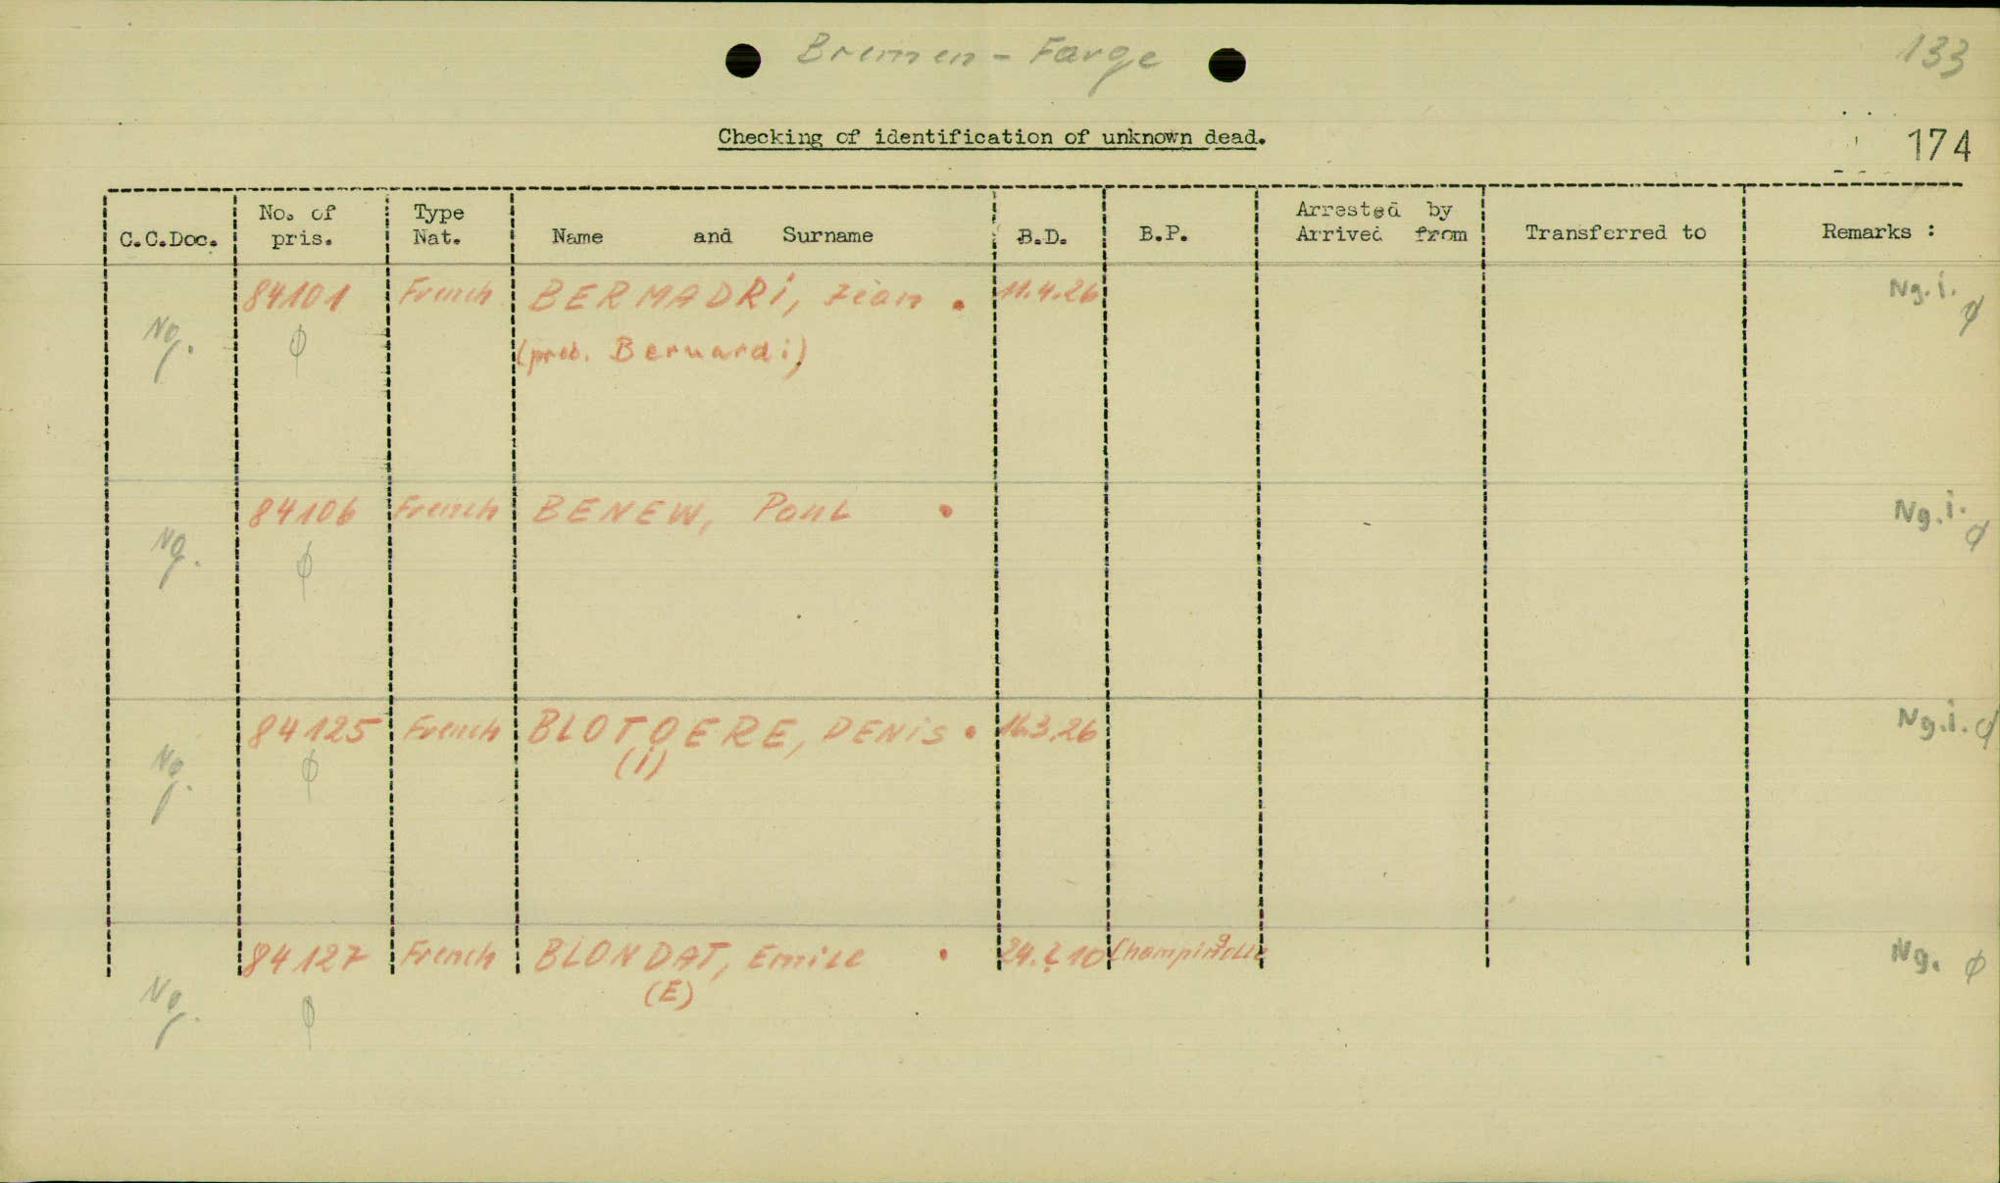 Bremen - Farge
133
Checking of identification of unknown dead.
174
C.C.Doc. No. of pris. Type Nat. Name and Surname B.D. B.P. Arrested by Arrived from Transferred to Remarks :
84101 French BERMADRi, Jean • 11.4.26 Ng. i. ∅
Ng. ∅ (prob. Bernardi)
84106 French BENEW, Paul • Ng. i. ∅
Ng. ∅
84125 French BLOTOERE, DENiS • 16.3.26 Ng. i. ∅
Ng. ∅ (i)
84127 French BLONDAT, Emile • 24. 10 Ng. ∅
Ng. ∅ (E)